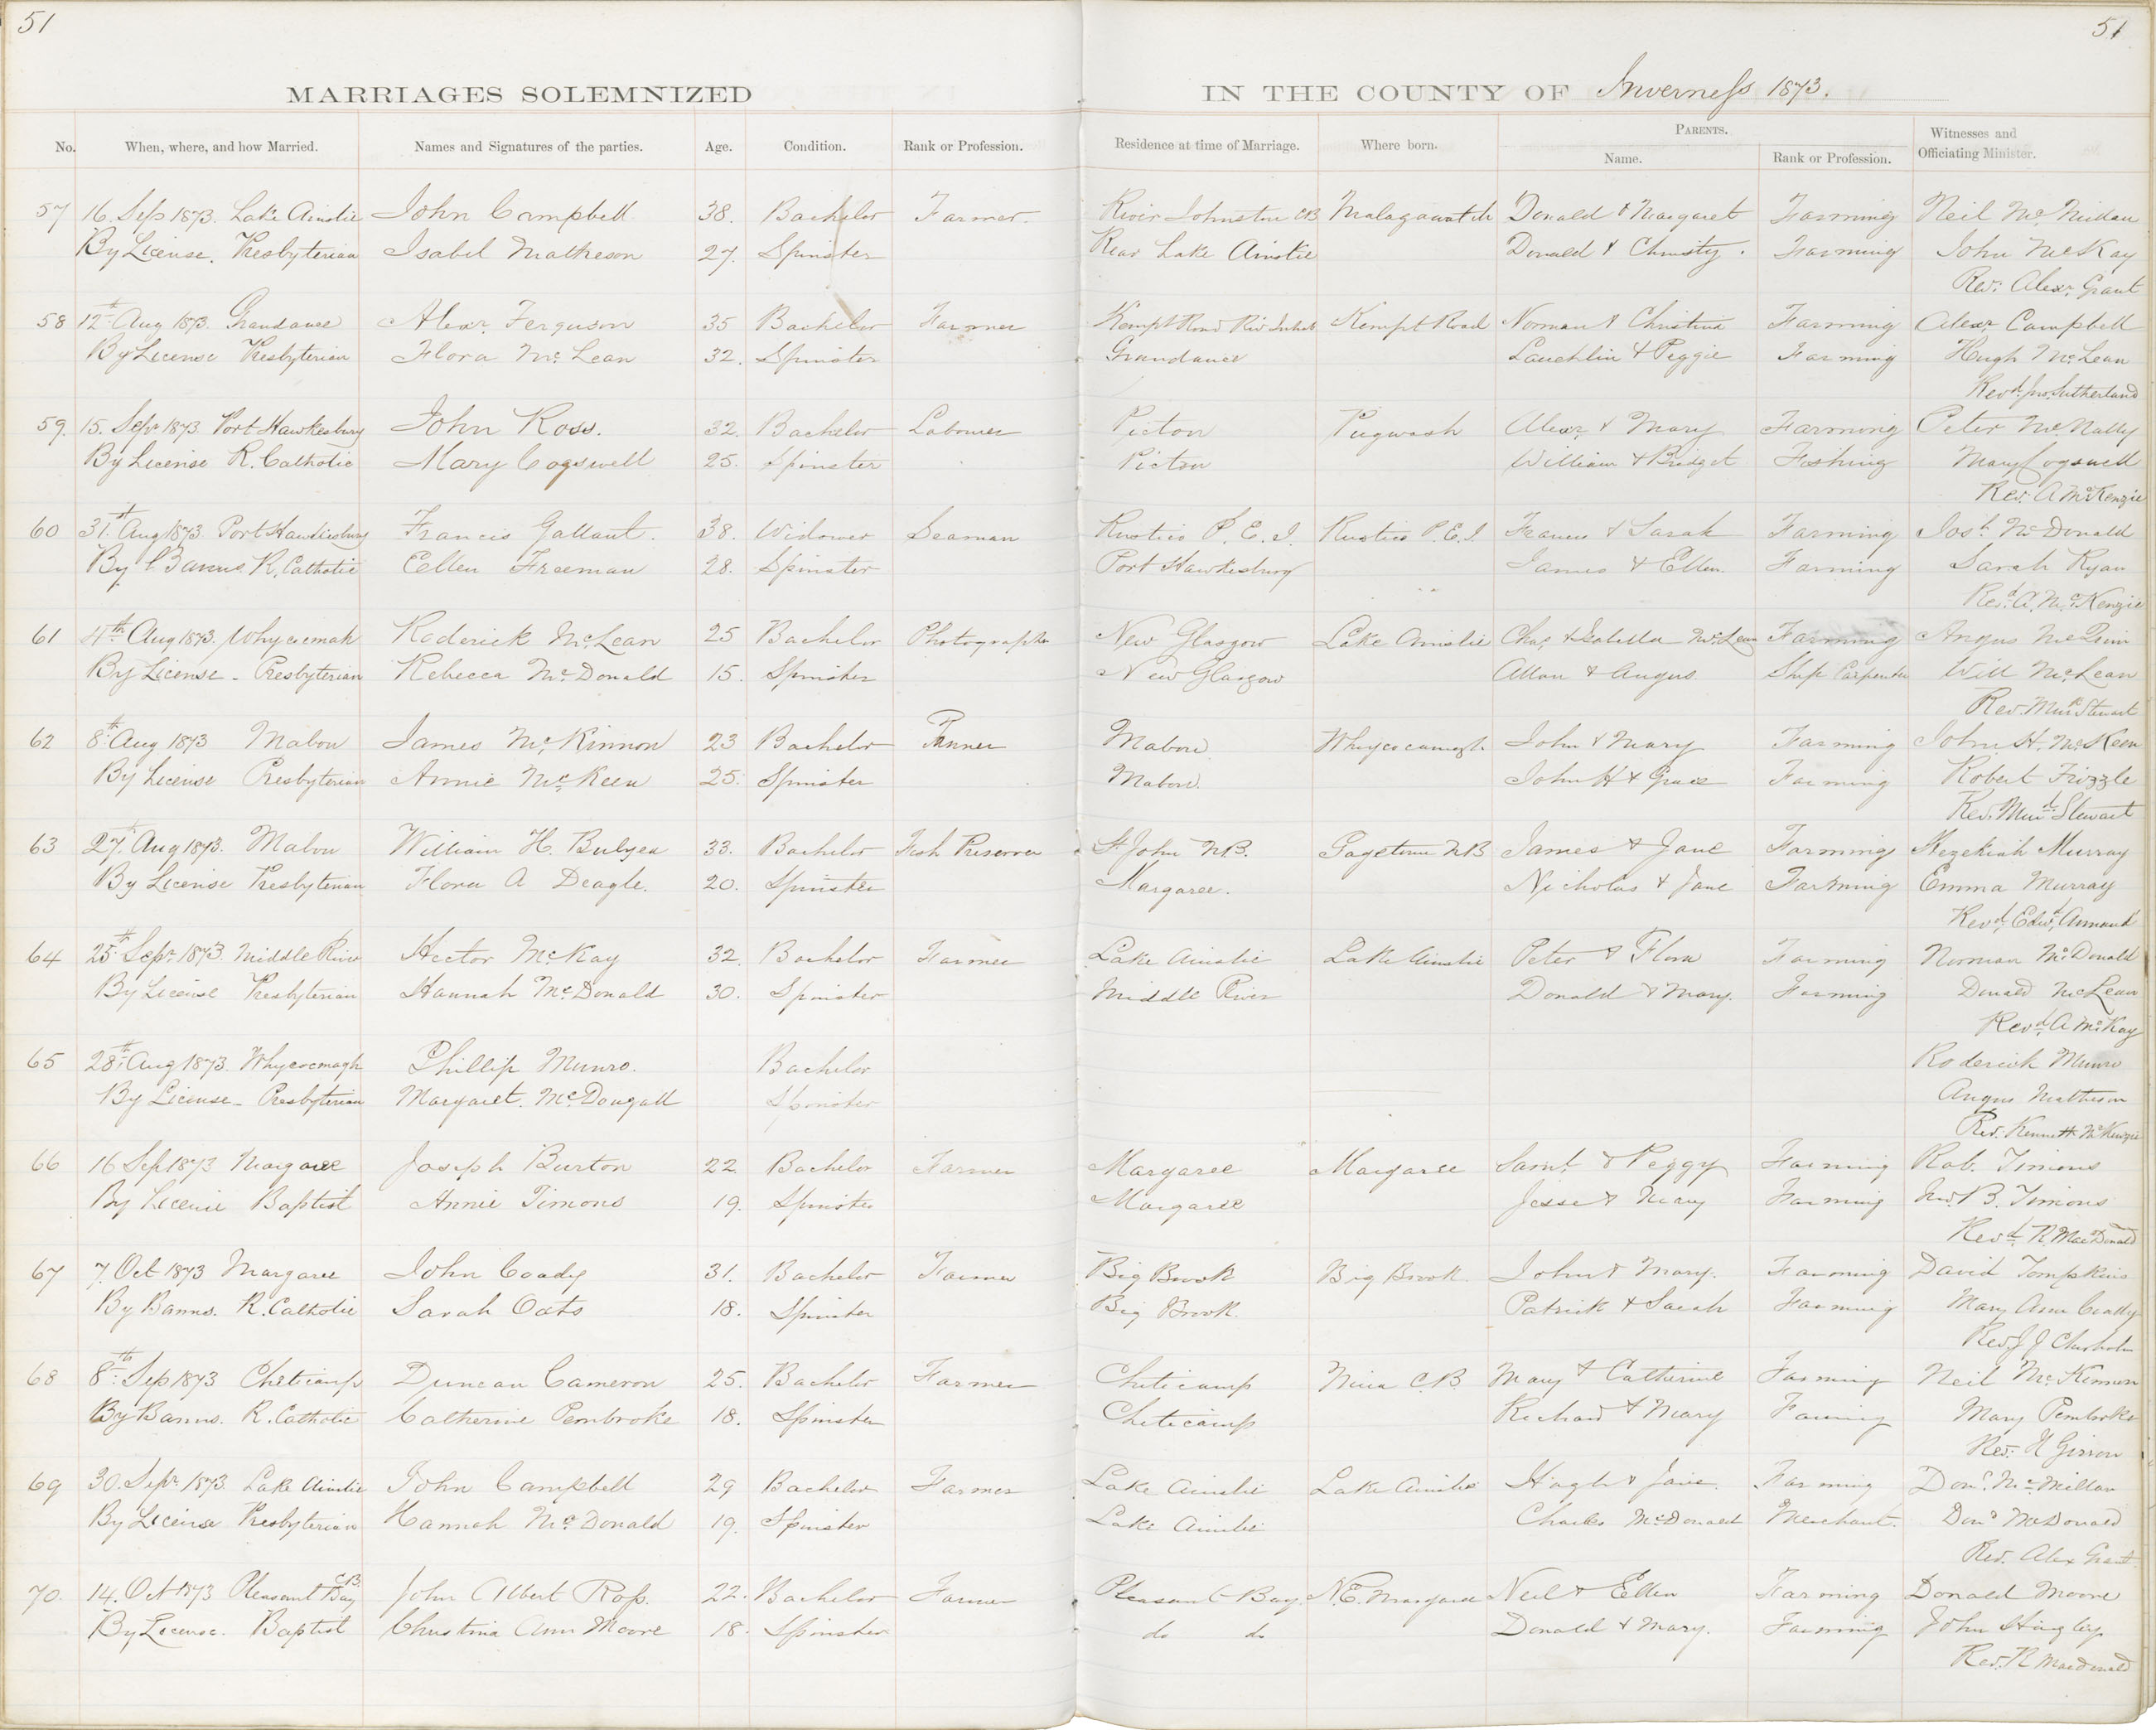 51
51
MARRIAGES SOLEMNIZED IN THE COUNTY OF Inverness 1873.
No. When, where, and how Married. Names and Signatures of the parties. Age. Condition. Rank or Profession. Residence at time of Marriage. Where born. PARENTS. Name. Rank or Profession. Witnesses and Officiating Minister.
57 16. Sep 1873. Lake Ainslie John Campbell 38. Bachelor Farmer. River Johnston CB Malagawatch Donald & Margaret Farming Neil
By License. Presbyterian Isabel Matheson 27. Spinster Rear Lake Ainslie Donald & Christy. Farming John McKay
Rev. Alexr. Grant
58 12th Aug 1873. Grandance Alexr. Ferguson 35 Bachelor Farmer Kempt Road Riv Inhab Kempt Road Norman & Christina Farming Alexr Campbell
By License Presbyterian Flora McLean 32. Spinster Grandance Lauchlin & Peggie Farming Hugh McLean
Revd. Jno. Sutherland
59. 15. Sepr 1873 Port Hawkesbury John Ross. 32. Bachelor Labourer Picton Pugwash Alexr. & Mary Farming Peter McNally
By License R. Catholic Mary Cogswell 25. Spinster Picton William & Bridget Fishing Mary Cogswell
Rev. A McKenzie
60 31st Aug 1873. Port Hawkesbury Francis Gallant. 38. Widower Seaman Rustico P. E. I. Rustico P. E. I. Francis & Sarah Farming Josh. McDonald
By Banns R. Catholic Ellen Freeman 28. Spinster Port Hawkesbury James & Ellen. Farming Sarah Ryan
Revd. A. McKenzie
61 4th Aug 1873. Whycocmah Roderick McLean 25 Bachelor Photographer New Glasgow Lake Ainslie Chas. & Isabella McLean Farming Angus McQuin
By License - Presbyterian Rebecca McDonald 15. Spinster New Glasgow Allan & Angus Ship Carpenter Will McLean
Rev. Murd Stewart
62 8th Aug 1873 Mabou James McKinnon 23 Bachelor Tanner Mabou Whycocamagh John & Mary Farming John H. McKeen
By License Presbyterian Annie McKeen 25. Spinster Mabou. John H & Grace Farming Robert Frizzle
Rev. Murd. Stewart
63 27th Aug 1873. Mabou William H. Bulyea 33. Bachelor Fish Preserver St. John NB. Gagetown NB James & Jane Farming Hezekiah Murray
By License Presbyterian Flora A Deagle. 20. Spinster Margaree. Nicholas & Jane Farming Emma Murray
Revd. Edwd. Annand
64 25th Sepr. 1873. Middle River Hector McKay 32. Bachelor Farmer Lake Ainslie Lake Ainslie Peter & Flora Farming Norman McDonald
By License Presbyterian Hannah McDonald 30. Spinster Middle River Donald & Mary. Farming Donald McLean
Revd. A McKay
65 28th Aug 1873. Whycocmagh Phillip Munro. Bachelor Roderick Munro
By License - Presbyterian Margaret. McDougall Spinster Angus Matheson
Rev. Kenneth McKenzie
66 16 Sep 1873 Margaree Joseph Burton 22 Bachelor Farmer Margaree Margaree Saml. & Peggy Farming Rob. Timons
By License Baptist Annie Timons 19. Spinster Margaree Jesse & Mary Farming Jno. B. Timons
Revd. R. MacDonald
67 7. Oct 1873 Margaree John Coady 31. Bachelor Farmer Big Brook Big Brook John & Mary. Farming David Tompkins
By Banns. R. Catholic Sarah Oats 18. Spinster Big Brook. Patrick & Sarah Farming Mary Ann Coady
Rev J J Chisholm
68 8th. Sep 1873 Cheticamp Duncan Cameron 25. Bachelor Farmer Cheticamp C.B. Mary & Catherine Farming Neil McKinnon
By Banns. R. Catholic Catherine Pembroke 18. Spinster Cheticamp Richard & Mary Farming Mary Pembroke
Rev.
69 30. Sepr. 1873 Lake Ainslie John Campbell 29 Bachelor Farmer Lake Ainslie Lake Ainslie Hugh & Jane. Farming Dond. McMillan
By License Presbyterian Hannah McDonald 19. Spinster Lake Ainslie Charles McDonald Merchant. Dond McDonald
Rev. Alex Grant
70. 14. Oct 1873 Pleasant Bay C.B. John Albert Ross. 22. Bachelor Farmer Pleasant Bay N.E. Margaree Neil & Ellen Farming Donald Moore
By License. Baptist Christina Ann Moore 18. Spinster do do Donald & Mary. Farming John Hingley
Rev. R Macdonald